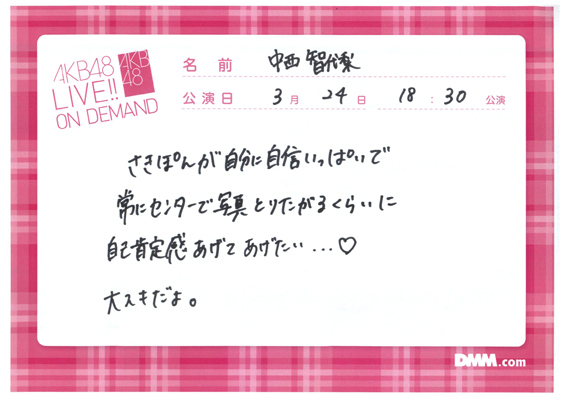 AKB48
LIVE!!
ON DEMAND
AKB
48
名前 中西智代梨
公演日 3月 24日 18:30 公演
さきぽんが自分に自信いっぱいで
常にセンターで写真とりたがるくらいに
自己肯定感あげてあげたい...♡
大スキだよ。
DMM.com